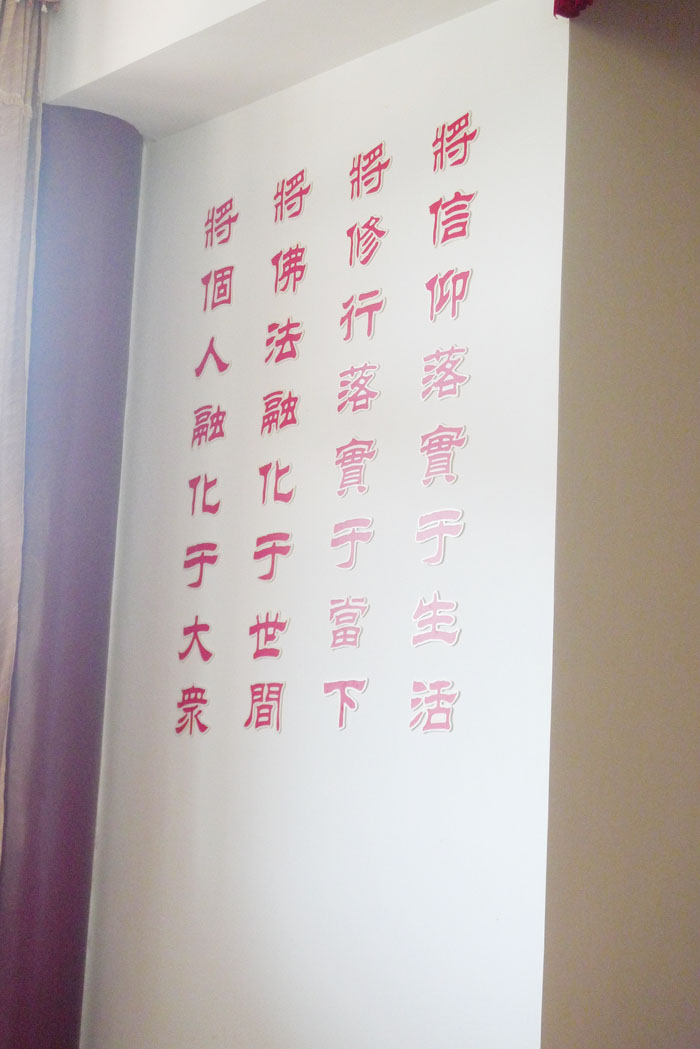 將信仰落實于生活
將修行落實于當下
將佛法融化于世間
將個人融化于大衆